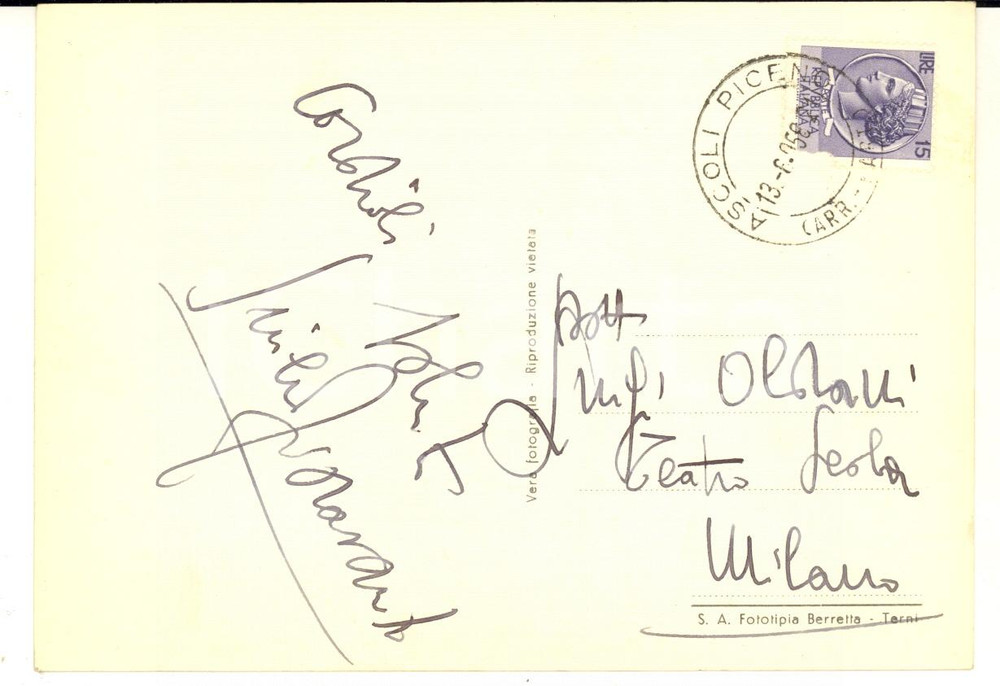 Cordiali
saluti
ASCOLI PICENO
13.-6.
(ARR.
LIRE
15
REPUBBLICA
ITALIANA
Vera fotografia - Riproduzione vietata
Dott
Luigi Oldani
Teatro Scala
Milano
S. A. Fototipia Berretta - Terni